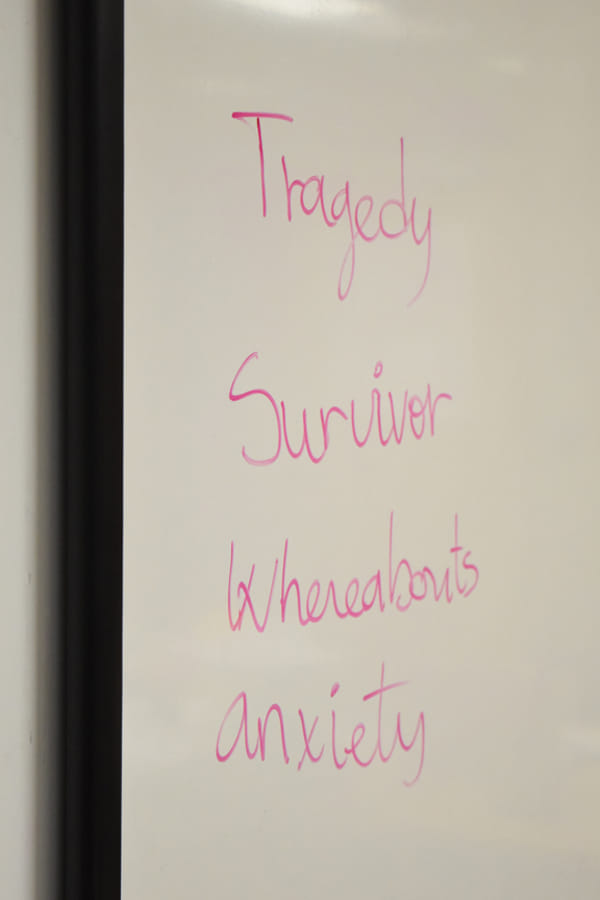 Tragedy
Survivor
Whereabouts
anxiety